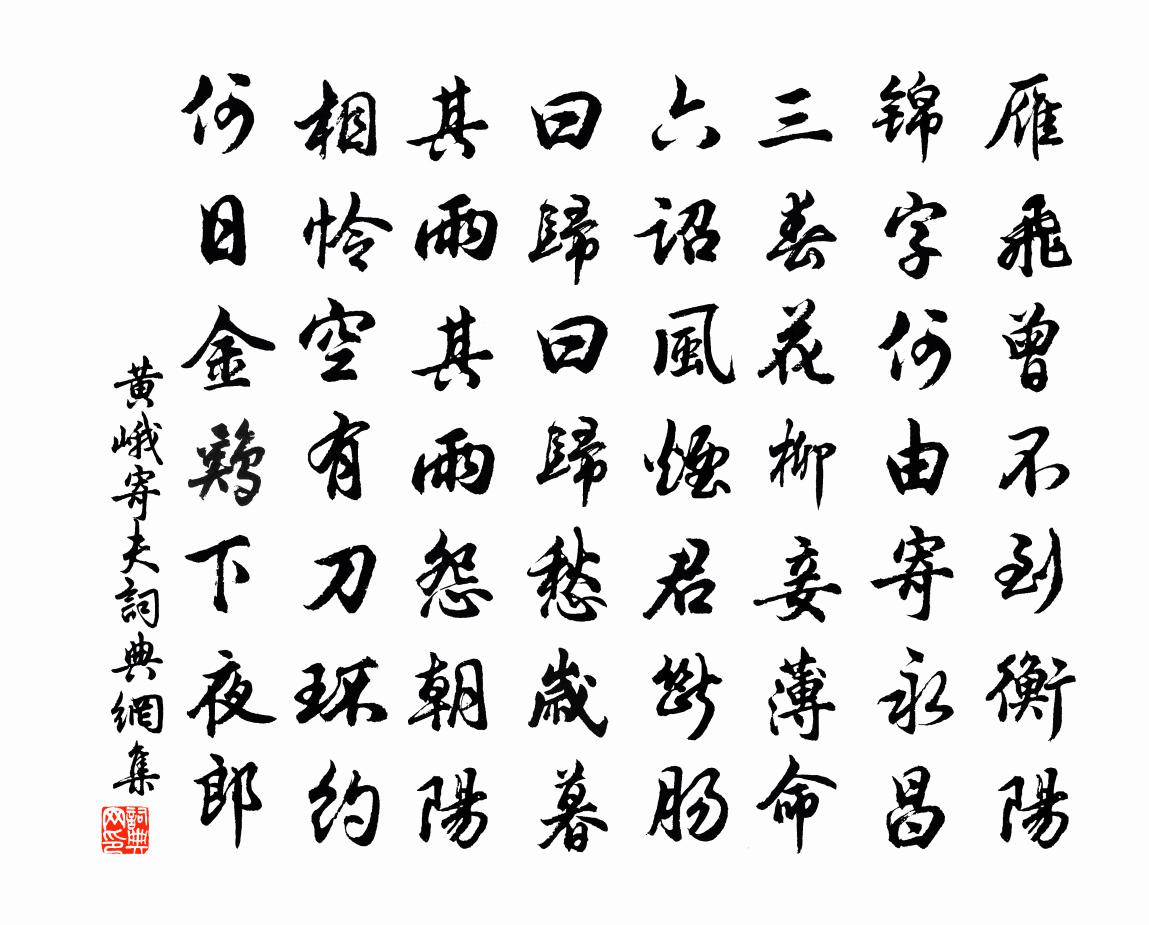 雁飛曾不到衡陽
錦字何由寄永昌
三春花柳妾薄命
六詔風煙君斷腸
曰歸曰歸愁歲暮
其雨其雨怨朝陽
相憐空有刀環約
何日金鷄下夜郎
黃峨寄夫詞典網集
詞典網印